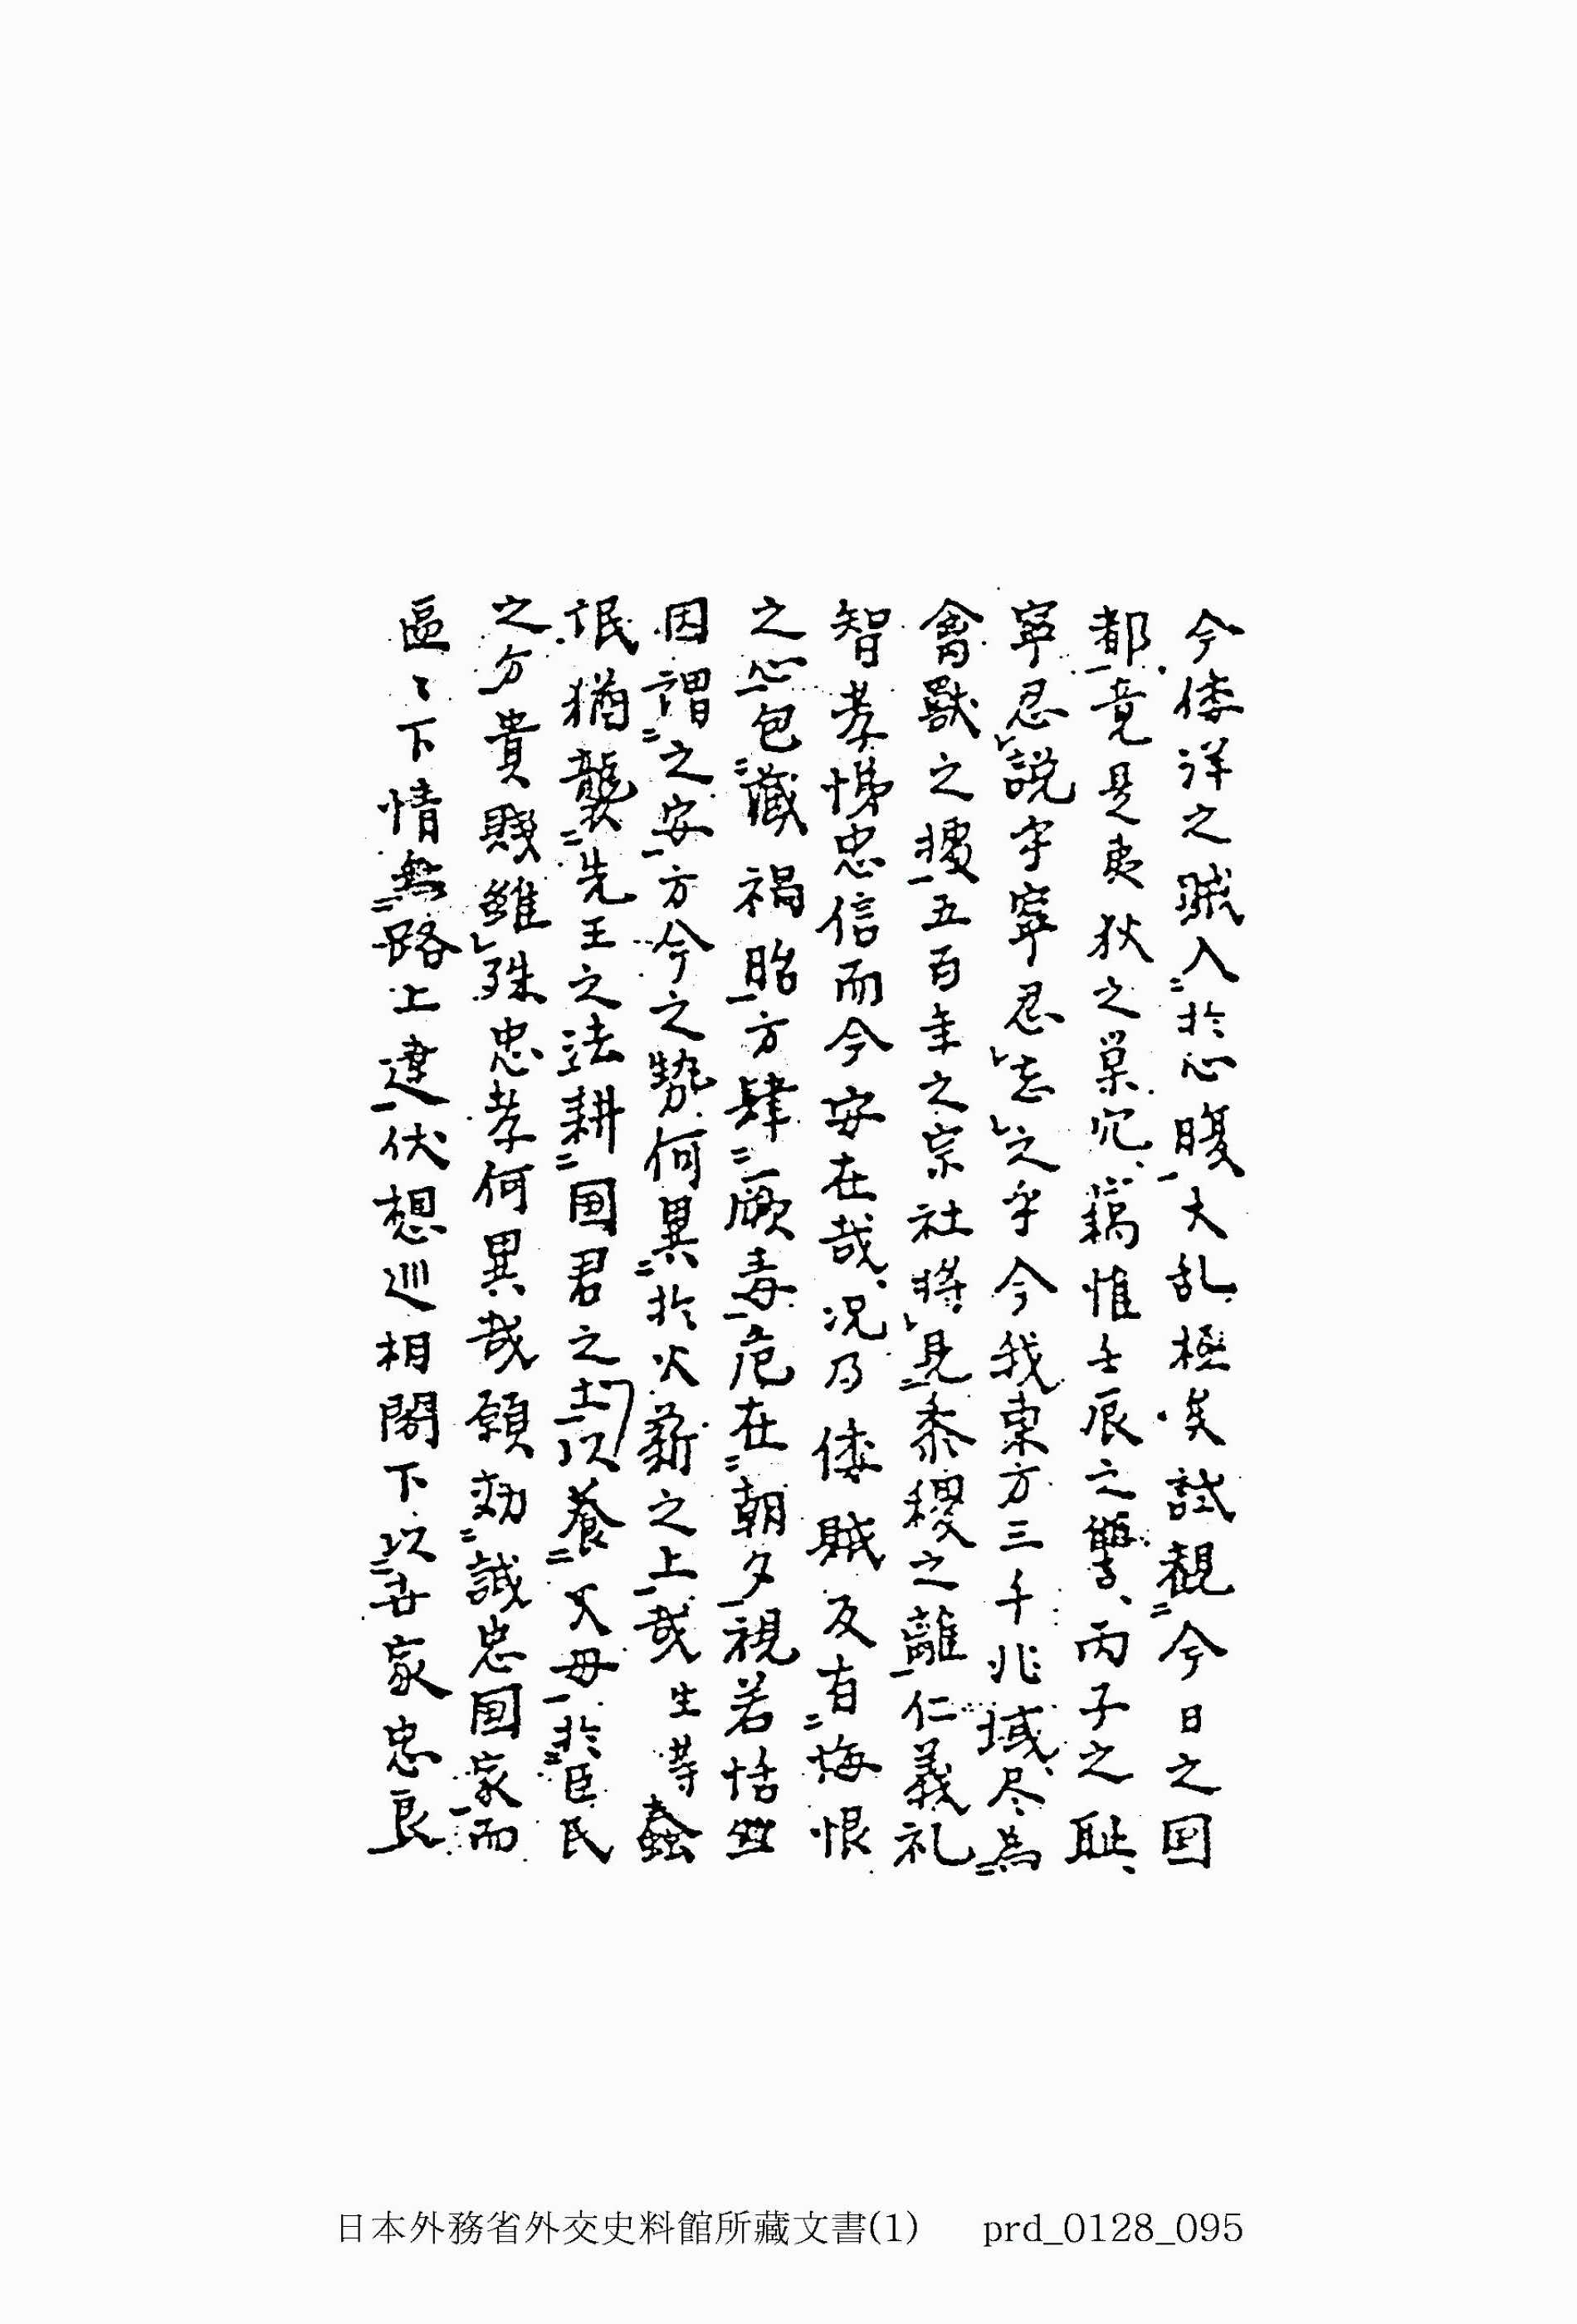 今倭洋之賊入於心腹大乱極矣試觀今日之国
都竟是夷狄之巣穴、竊惟壬辰之讐、丙子之耻、
寧忍說乎寧忍忘之乎今我東方三千兆域、尽為
禽獸之墟五百年之宗社将見黍稷之離仁義礼
智孝悌忠信而今安在哉、况乃倭賊反有悔恨
之心包藏禍胎方肆厥毒危在朝夕視若恬然
因謂之安方今之勢何異於火薪之上哉生等蠢
氓猶襲先王之法耕国君之土以養父母於臣民
之分貴賤雖殊忠孝何異哉願効誠忠国家而
區〻下情無路上達伏想巡相閤下以世家忠良
日本外務省外交史料館所藏文書(1) prd_0128_095